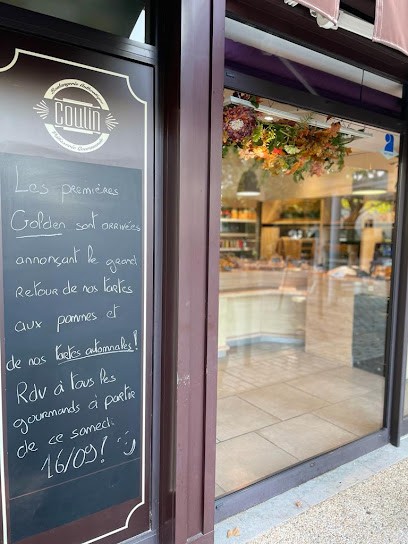 Boulangerie Artisanale
COLLIN
Pâtisserie Gourmande
Les premières
Golden sont arrivées
annonçant le grand
retour de nos tartes
aux pommes et
de nos tartes automnales !
Rdv à tous les
gourmands à partir
de ce samedi
16/09 !
2